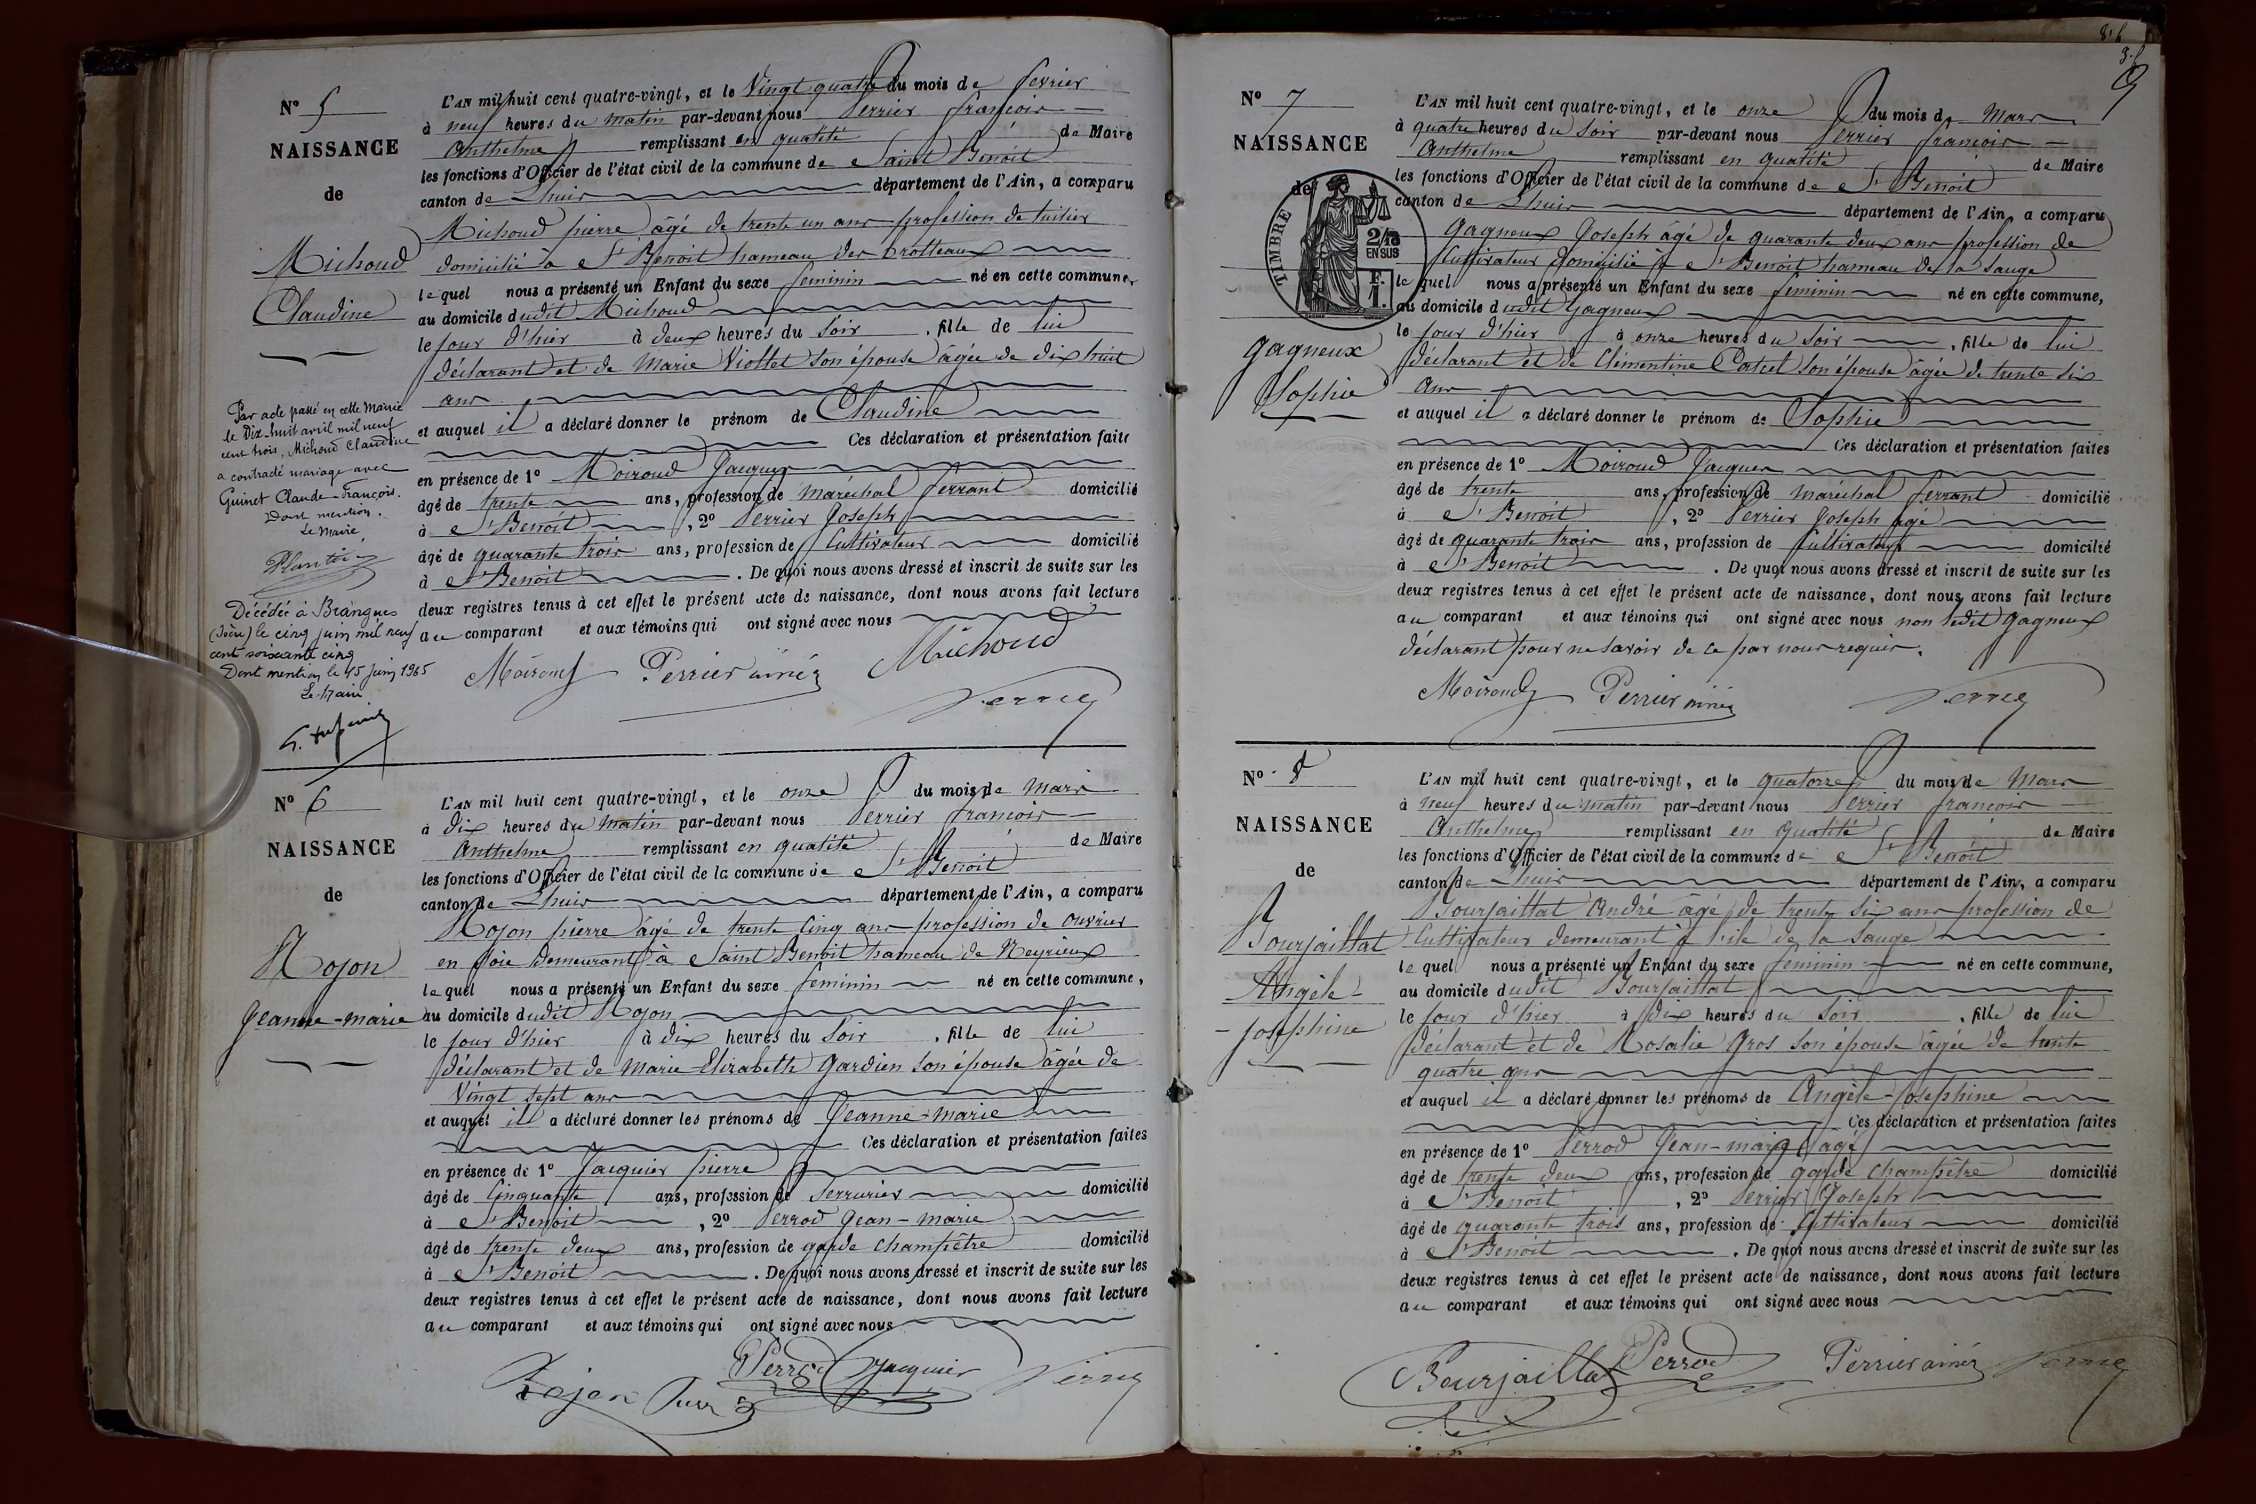 N° 5
NAISSANCE
de
Michoud
Claudine
Par acte passé en cette Mairie
le Dix-huit avril mil neuf
cent trois, Michoud Claudine
a contracté mariage avec
Guinet Claude-François.
Dont mention.
Le Maire,
Plantin
Décédée à Brangues
(Isère) le cinq juin mil neuf
cent soixante cinq
Dont mention le 15 juin 1965
Le Maire
L'AN mil huit cent quatre-vingt, et le Vingt quatre du mois de fevrier
à neuf heures du matin par-devant nous Perrier françois
Anthelme remplissant en qualité de Maire
les fonctions d'Officier de l'état civil de la commune de Saint Benoit
canton de Lhuis département de l'Ain, a comparu
Michoud pierre âgé de trente un ans profession de tuilier
domicilié à St Benoit hameau des Brotteaux
lequel nous a présenté un Enfant du sexe feminin né en cette commune,
au domicile dudit Michoud
le jour d'hier à deux heures du soir, fille de lui
déclarant et de Marie Viollet son épouse âgée de dix huit
ans
et auquel il a déclaré donner le prénom de Claudine
Ces déclaration et présentation faite
en présence de 1° Moiroud Jacques
âgé de trente ans, profession de maréchal ferrant domicilié
à St Benoit, 2° Perrier Joseph
âgé de quarante trois ans, profession de Cultivateur domicilié
à St Benoit. De quoi nous avons dressé et inscrit de suite sur les
deux registres tenus à cet effet le présent acte de naissance, dont nous avons fait lecture
au comparant et aux témoins qui ont signé avec nous
Moiroud Perrier ainé Michoud
N° 6
NAISSANCE
de
Rojon
Jeanne-marie
L'AN mil huit cent quatre-vingt, et le onze du mois de Mars
à dix heures du matin par-devant nous Perrier françois
Anthelme remplissant en qualité de Maire
les fonctions d'Officier de l'état civil de la commune de St Benoit
canton de Lhuis département de l'Ain, a comparu
Rojon pierre âgé de trente cinq ans profession de ouvrier
en soie demeurant à Saint Benoit hameau de Neyrieux
lequel nous a présenté un Enfant du sexe feminin né en cette commune,
au domicile dudit Rojon
le jour d'hier à dix heures du soir, fille de lui
déclarant et de Marie-Elizabeth Gardien son épouse âgée de
Vingt sept ans
et auquel il a déclaré donner les prénoms de Jeanne-marie
Ces déclaration et présentation faites
en présence de 1° Jacquier pierre
âgé de Cinquante ans, profession de Serrurier domicilié
à St Benoit, 2° Perrod Jean-marie
âgé de trente deux ans, profession de garde champêtre domicilié
à St Benoit. De quoi nous avons dressé et inscrit de suite sur les
deux registres tenus à cet effet le présent acte de naissance, dont nous avons fait lecture
au comparant et aux témoins qui ont signé avec nous
Rojon Perrod Jacquier
9
N° 7
NAISSANCE
de
TIMBRE
2/10
EN SUS
F.
1.
gagneux
Sophie
L'AN mil huit cent quatre-vingt, et le onze du mois de Mars
à quatre heures du soir par-devant nous Perrier françois
Anthelme remplissant en qualité de Maire
les fonctions d'Officier de l'état civil de la commune de St Benoit
canton de Lhuis département de l'Ain, a comparu
gagneux Joseph âgé de quarante deux ans profession de
Cultivateur domicilié à St Benoit hameau de la Sauge
lequel nous a présenté un Enfant du sexe feminin né en cette commune,
au domicile dudit gagneux
le jour d'hier à onze heures du soir, fille de lui
déclarant et de Clémentine son épouse âgée de trente six
ans
et auquel il a déclaré donner le prénom de Sophie
Ces déclaration et présentation faites
en présence de 1° Moiroud Jacques
âgé de trente ans, profession de maréchal ferrant domicilié
à St Benoit, 2° Perrier Joseph âgé
âgé de quarante trois ans, profession de Cultivateur domicilié
à St Benoit. De quoi nous avons dressé et inscrit de suite sur les
deux registres tenus à cet effet le présent acte de naissance, dont nous avons fait lecture
au comparant et aux témoins qui ont signé avec nous non ledit gagneux
déclarant pour ne savoir de ce par nous requis.
Moiroud Perrier ainé
N° 8
NAISSANCE
de
Bourjaillat
Angèle-
-josephine
L'AN mil huit cent quatre-vingt, et le quatorze du mois de Mars
à neuf heures du matin par-devant nous Perrier françois
Anthelme remplissant en qualité de Maire
les fonctions d'Officier de l'état civil de la commune de St Benoit
canton de Lhuis département de l'Ain, a comparu
Bourjaillat André âgé de trente six ans profession de
Cultivateur demeurant à l'ile de la Sauge
lequel nous a présenté un Enfant du sexe feminin né en cette commune,
au domicile dudit Bourjaillat
le jour d'hier à dix heures du soir, fille de lui
déclarant et de Rosalie Gros son épouse âgée de trente
quatre ans
et auquel il a déclaré donner les prénoms de Angèle-Josephine
Ces déclaration et présentation faites
en présence de 1° Perrod Jean-marie âgé
âgé de trente deux ans, profession de garde champêtre domicilié
à St Benoit, 2° Perrier Joseph
âgé de quarante trois ans, profession de Cultivateur domicilié
à St Benoit. De quoi nous avons dressé et inscrit de suite sur les
deux registres tenus à cet effet le présent acte de naissance, dont nous avons fait lecture
au comparant et aux témoins qui ont signé avec nous
Bourjaillat Perrod Perrier ainé